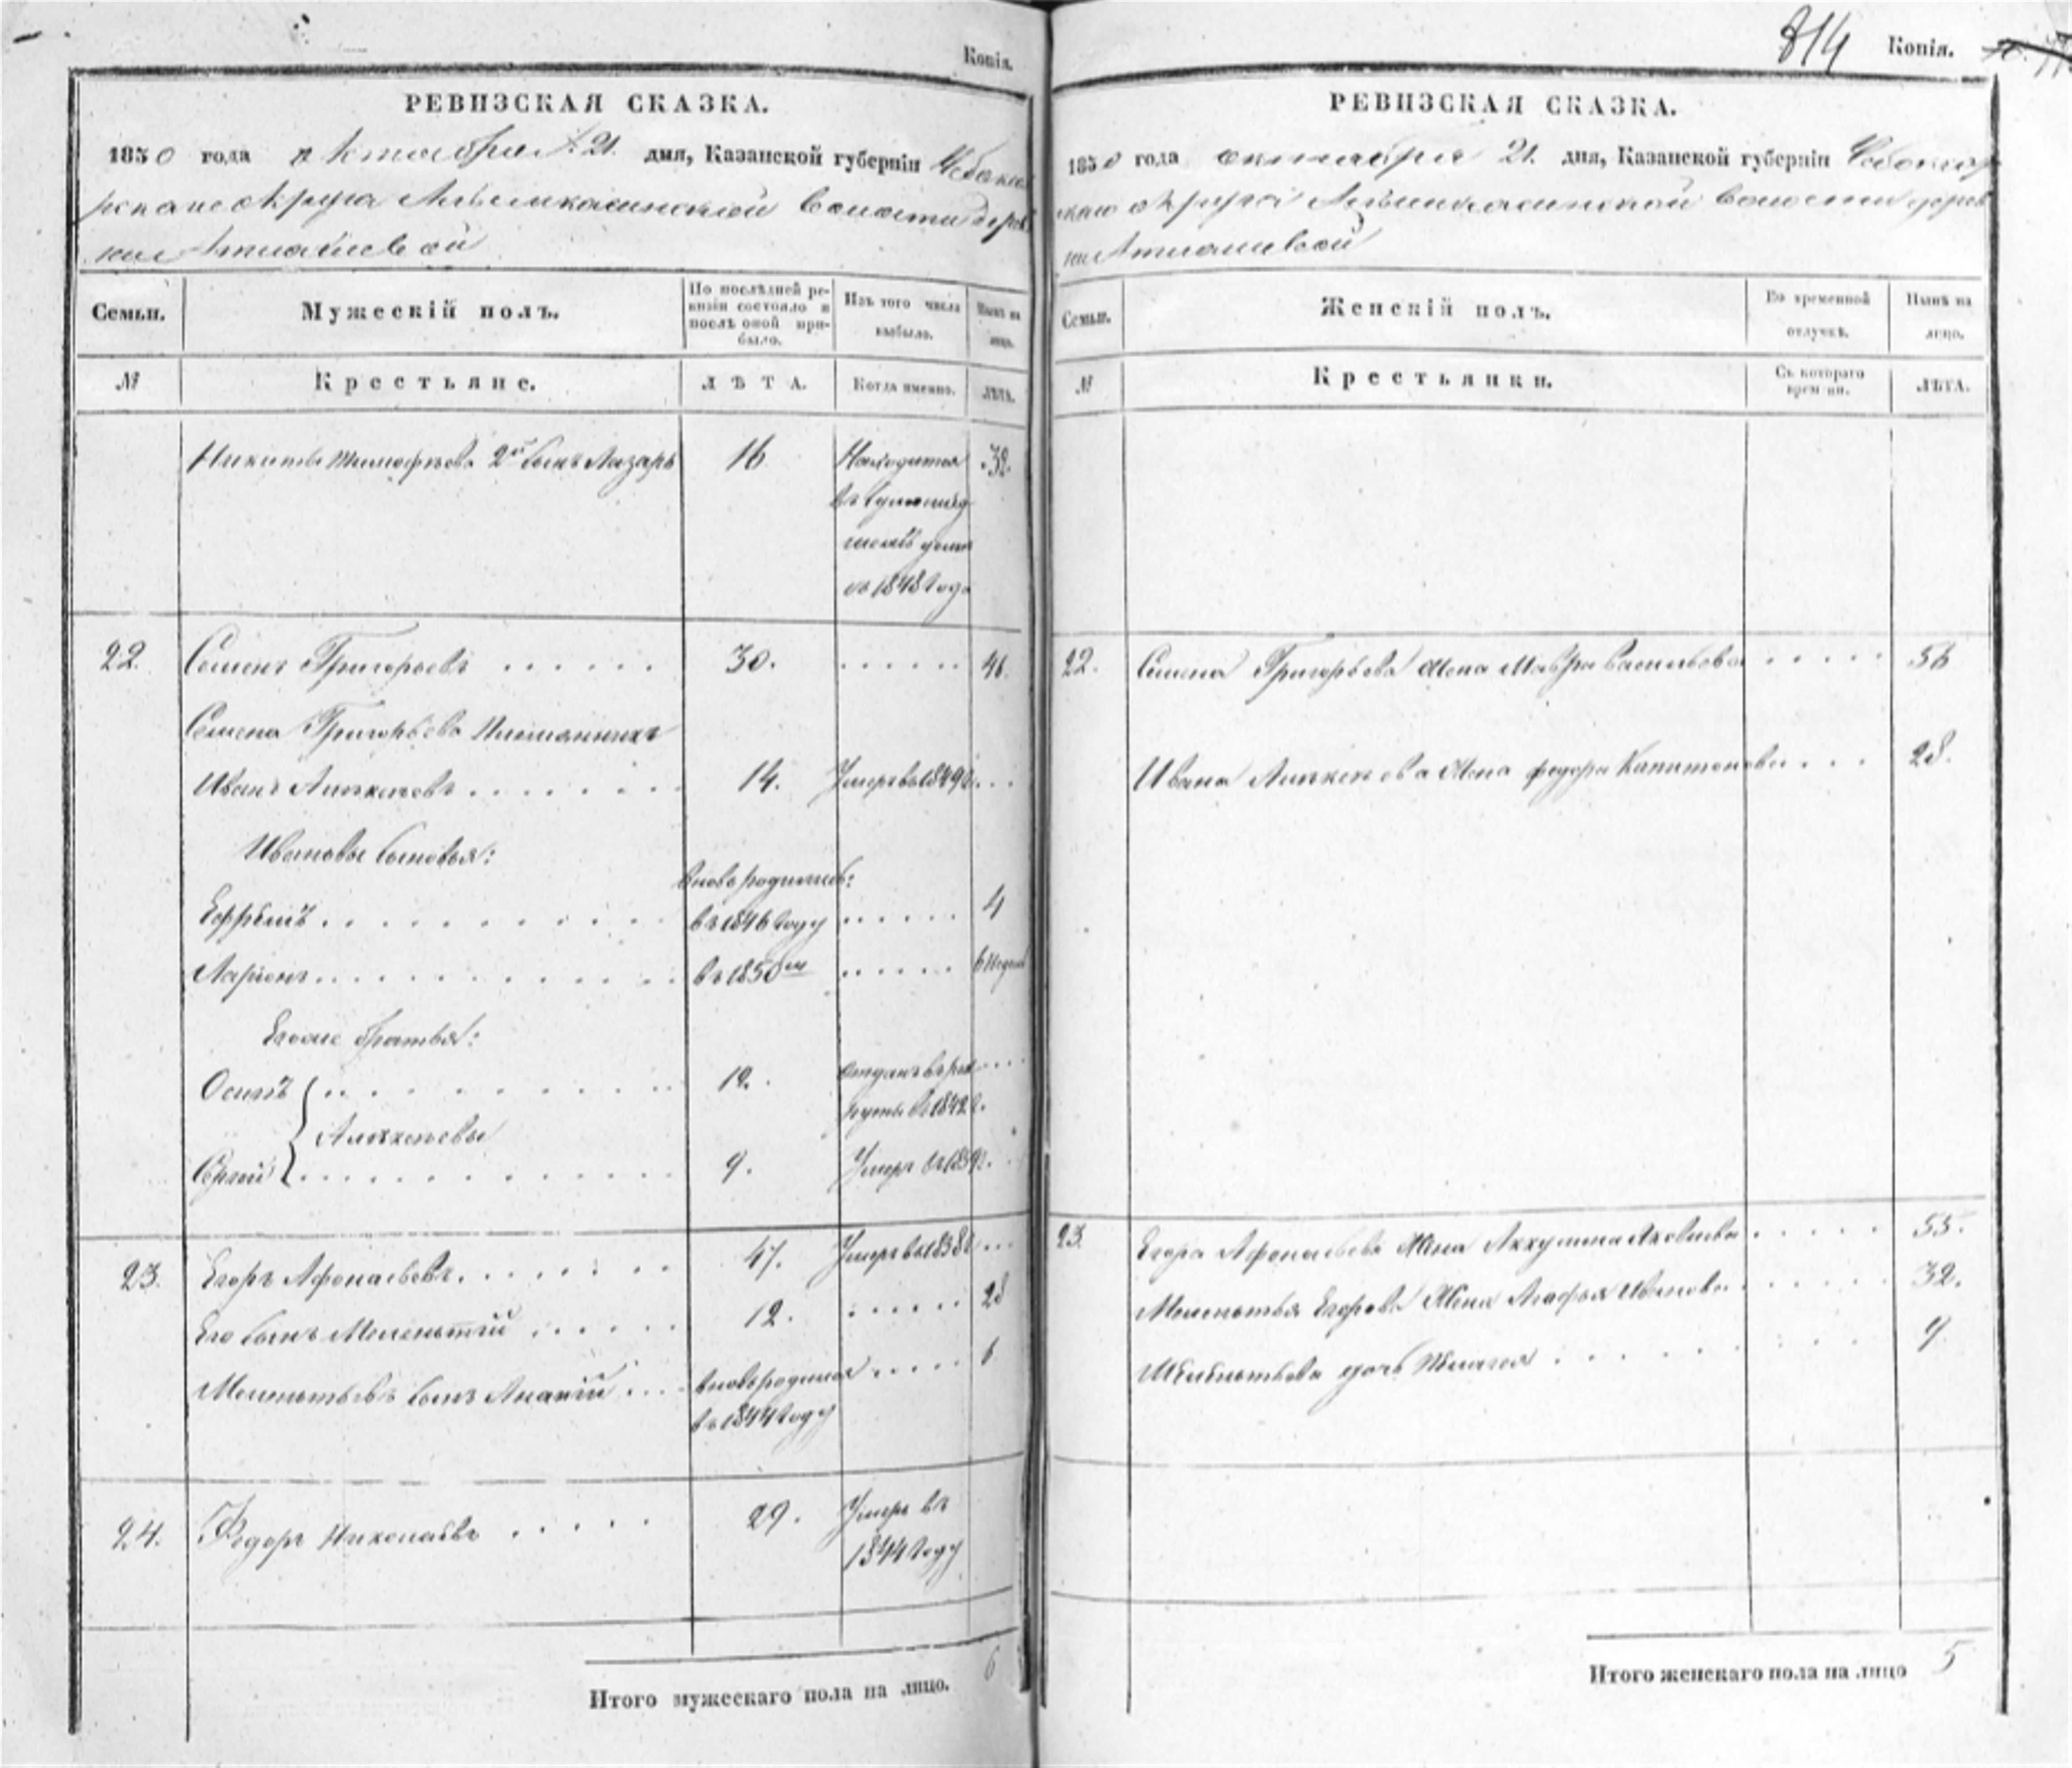 Копія.
РЕВИЗСКАЯ СКАЗКА.
1850 года октабря 21. дня, Казанской губерніи Чебокса
рскаго округа волости дерев
ни
Семьи. Мужескій полъ. По послѣдней ре- Изъ того числа Нынѣ на
визіи состояло и выбыло. лицо.
послѣ оной при-
было.
№ Крестьяне. ЛѢТА. Когда именно. ЛѢТА.
Никиты Тимофѣева 2й сынъ Лазарь 16 Находится 32.
въ
съ 1848 года
22. Семенъ Григорьевъ 30. 46.
Семена Григорьева племянникъ
Иванъ 14. Умеръ въ 1849 г.
Ивановы сыновья:
вновь родились:
Ефремъ въ 1846 году 4
Ларіонъ въ 1850 м 6 недель
Егоже братья:
Осипъ 12. отданъ въ рек
руты въ 1842 г.
Сергѣй 9. Умеръ въ 1839 г.
23. Егоръ Афонасьевъ 47. Умеръ въ 1838 г.
Его сынъ Мелентій 12. 28
Мелентьевъ сынъ Ананій вновь родился 6
въ 1844 году
24. Федоръ Николаевъ 29. Умеръ въ
1844 году
Итого мужескаго пола на лицо. 6
814 Копія.
РЕВИЗСКАЯ СКАЗКА.
1850 года октября 21. дня, Казанской губерніи Чебоксар
скаго округа волости дерев
ни
Семьи. Женскій полъ. Во временной Нынѣ на
отлучкѣ. лицо.
№ Крестьянки. Съ котораго ЛѢТА.
времяни.
22. Семена Григорьева жена Мавра Васильева 56
Ивана жена Федора Капитонова 28.
23. Егора Афонасьева жена Аккулина Яковлева 55.
Мелентья Егорова жена Агафья Иванова 32.
Мелентьева дочь 9
Итого женскаго пола на лицо 5